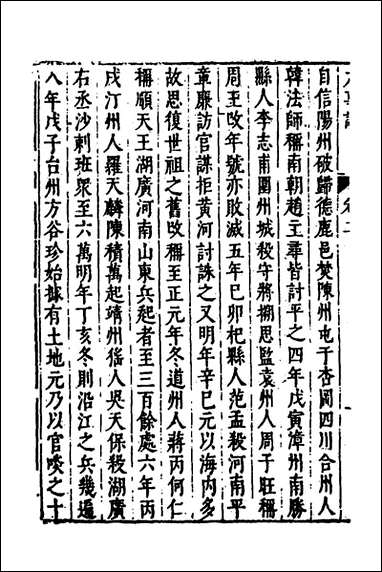 自信陽州破歸德鹿邑焚陳州屯于杏岡四川合州人
韓法師稱南朝趙王尋皆討平之四年戊寅漳州南勝
縣人李志甫圍州城殺守將搠思監袁州人周子旺稱
周王改年號亦敗滅五年己卯杞縣人范孟殺河南平
章廉訪官謀拒黃河討誅之又明年辛巳元以海内多
故思復世祖之舊改稱至正元年冬道州人蔣丙何仁
稱順天王湖廣河南山東兵起者至三百餘處六年丙
戌汀州人羅天麟陳積萬起靖州猺人吳天保殺湖廣
右丞沙剌班眾至六萬明年丁亥冬則沿江之兵幾遍
八年戊子台州方谷珍始據有土地元乃以官啖之十